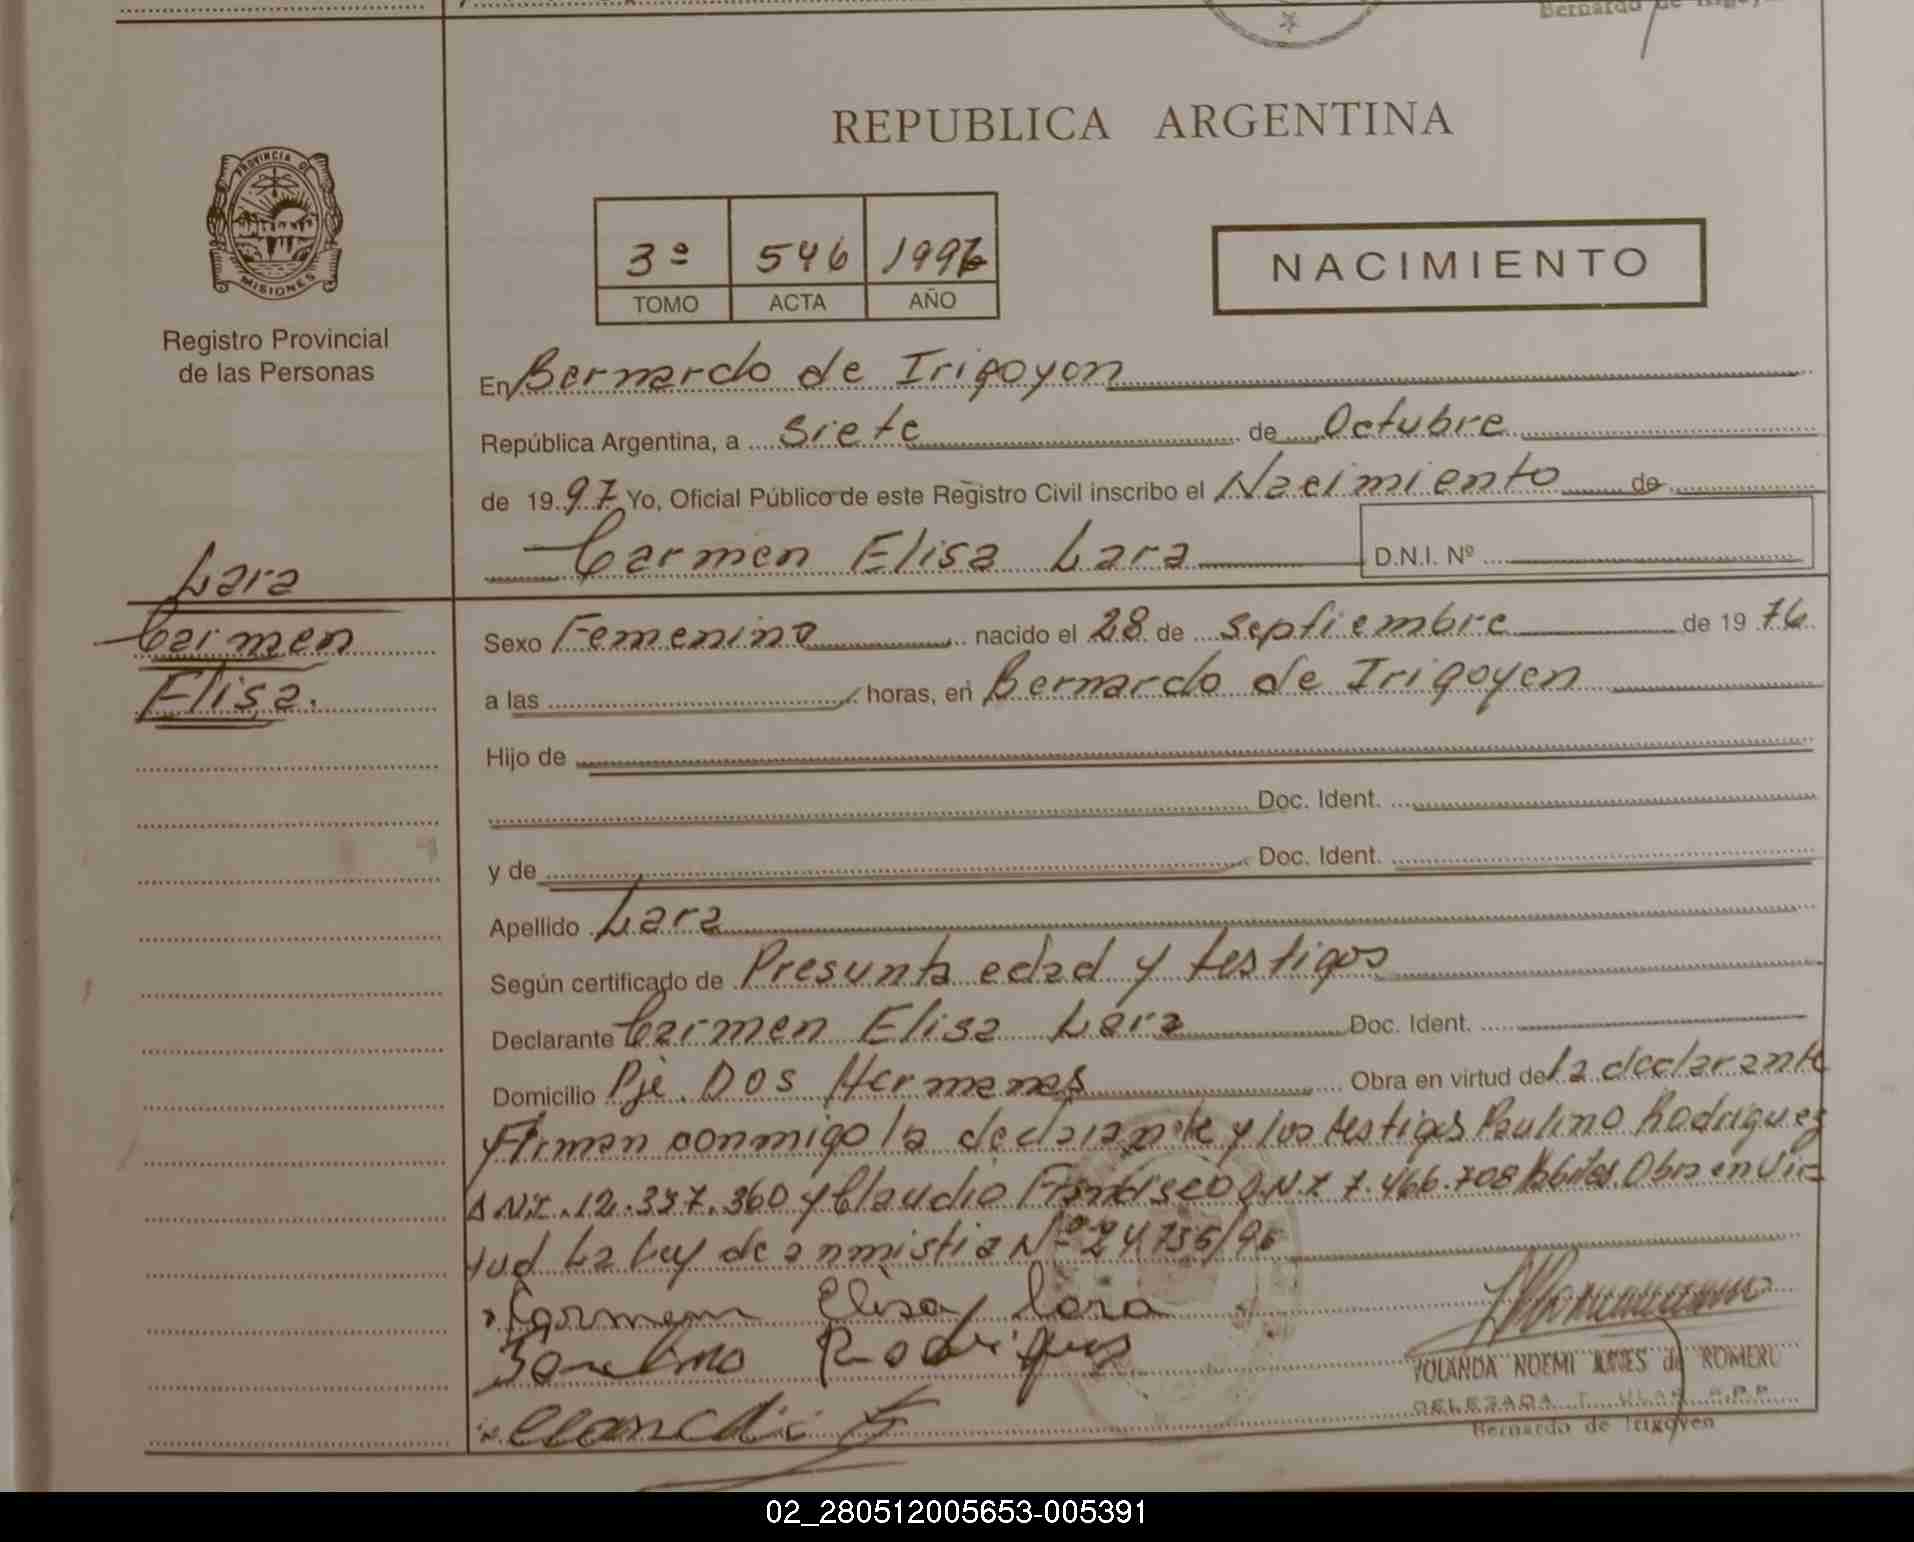 Bernardo de Irigoyen
REPUBLICA ARGENTINA
PROVINCIA DE
MISIONES
Registro Provincial
de las Personas
3º 546 1997
TOMO ACTA AÑO
NACIMIENTO
En Bernardo de Irigoyen
República Argentina, a siete de Octubre
de 1997 Yo, Oficial Público de este Registro Civil inscribo el Nacimiento de
Carmen Elisa Lara D.N.I. Nº
Lara
Carmen
Elisa.
Sexo Femenino nacido el 28 de septiembre de 1976
a las horas, en Bernardo de Irigoyen
Hijo de
Doc. Ident.
y de Doc. Ident.
Apellido Lara
Según certificado de Presunta edad y testigos
Declarante Carmen Elisa Lara Doc. Ident.
Domicilio Pje. Dos Hermanas Obra en virtud de la declarante
Firman conmigo la declarante y los testigos Paulino Rodriguez
DNI. 12.337.360 y Claudio D.N.I 7.466.708 Obra en vir
tud La Ley de anmistia Nº 24.755/96
Carmem Elisa Lara
Rodrigues
YOLANDA NOEMI de ROMERO
DELEGADA TITULAR R.P.P.
Bernardo de Irigoyen
02_280512005653-005391